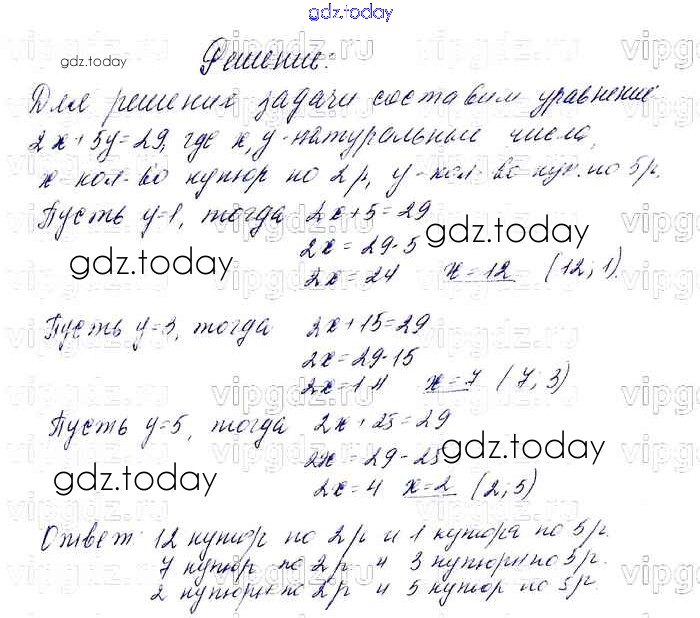 gdz.today
gdz.today
Решение:
Для решения задачи составим уравнение
2x+5y=29, где x, y-натуральные числа,
x-кол-во купюр по 2р, y-кол-во куп. по 5р.
Пусть y=1, тогда 2x+5=29
gdz.today
2x=29-5
gdz.today
2x=24 x=12 (12; 1).
Пусть y=3, тогда 2x+15=29
2x=29-15
2x=14 x=7 (7; 3)
Пусть y=5, тогда 2x+25=29
gdz.today
2x=29-25
gdz.today
2x=4 x=2 (2; 5)
Ответ: 12 купюр по 2р и 1 купюра по 5р.
7 купюр по 2р и 3 купюры по 5р.
2 купюры по 2р и 5 купюр по 5р.
vipgdz.ru